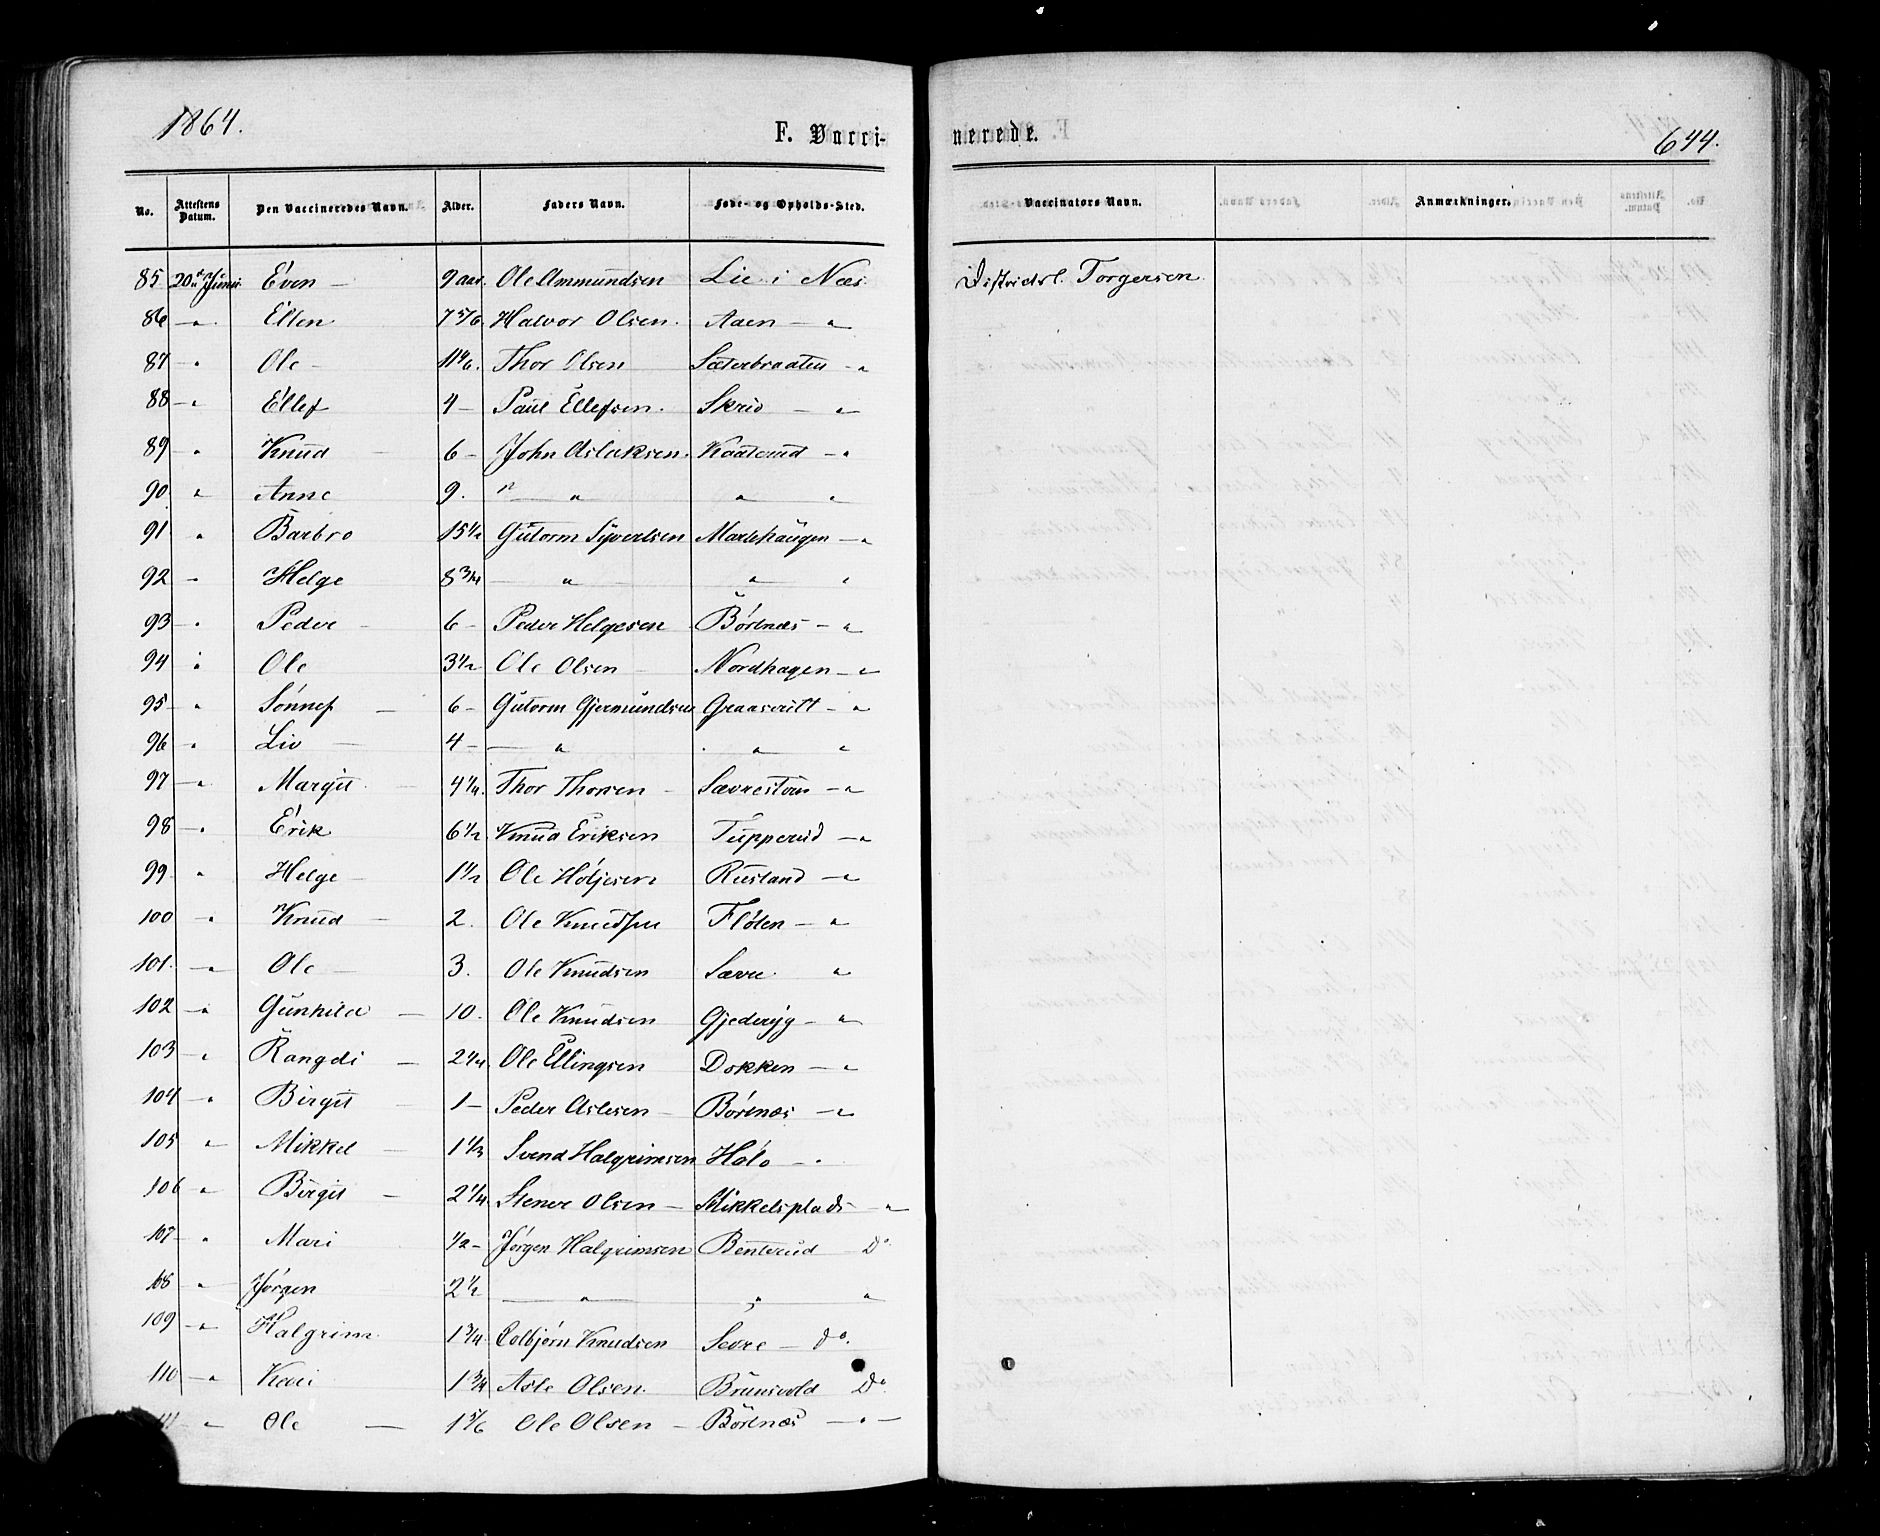 1864.
F. Vacci-
nerede.
644.
No. Attestens Datum. Den Vaccineredes Navn. Alder. Faders Navn. Føde- og Opholds-Sted. Vaccinators Navn. Anmærkninger.
85 20de Juni Even – 9 aar. Ole Ammundsen Lie i Næs. Districtsl. Torgersen
86 – " Ellen 7 5/6. Halvor Olsen. Aaen – "
87 – " Ole – 11 4/6. Thor Olsen Sæterbraaten – "
88 – " Ellef 4 – Paul Ellefsen. Skrid – "
89 " Knud – 6 – John Aslaksen. Kaaterud – "
90 " Anne 9. " – " " "
91 " Barbro 15 1/2 Gutorm Syvertsen Marlehaugen – "
92 – Helge 8 3/4 – " – " "
93 – " Peder – 6 – Peder Helgesen Börtnæs – "
94 " Ole 3 1/2 Ole Olsen – Nordhagen – "
95 – " Sønnef – 6 – Gutorm Gjermundsen Graaseritt – "
96 " Liv – 4 – – " " "
97 – " Margit – 4 1/4. Thor Thorsen – Sævrestøen – "
98 – " Erik 6 1/2 Knud Eriksen Tupperud – "
99 " Helge – 1 1/2 Ole Höljesen Rusland – "
100 " Knud – 2. Ole Knudsen Fløten – "
101. – " Ole – 3. Ole Knudsen Sævre "
102 – " Gunhild – 10. Ole Knudsen Gjederyg – "
103 " Rangdi – 2 1/4. Ole Ellingsen Dokken – "
104 – " Birgit – 1 – Peder Aslesen – Börtnæs – "
105 " Mikkel – 1 1/3 Svend Halgrimsen Hølo – "
106 – " Birgit – 2 1/4. Stener Olsen – Mikkelsplads – "
107 – " Mari 1/2 – Jørgen Halgrimsen Benterud – Do
108 " Jörgen 2 1/2 – " – " "
109 – " Halgrim 1 3/4. Colbjörn Knudsen Sevre – do.
110 – " Kari 1 3/4 Asle Olsen. Brunsvold Do
" Ole – 1 5/6 Ole Olsen – Börtnæs – " –